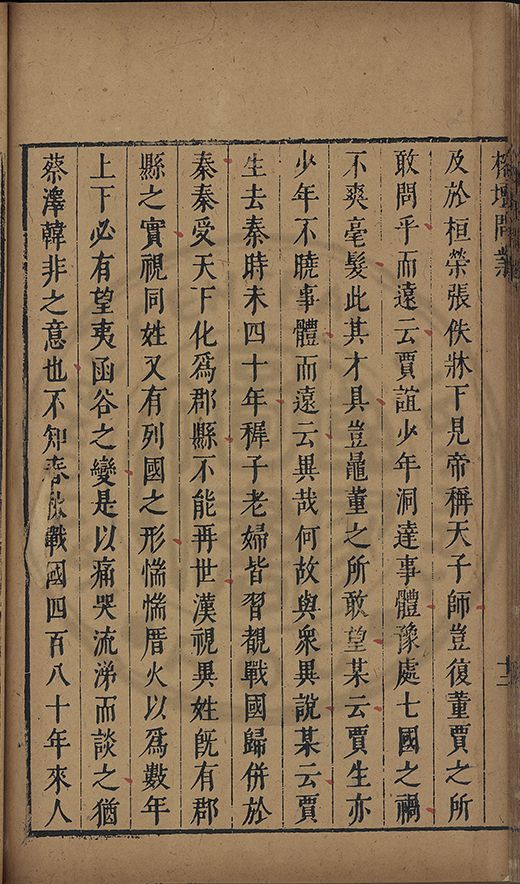 榕壇問業
十二
及於桓榮張佚牀下見帝稱天子師豈復董賈之所
敢問乎而遠云賈誼少年洞達事體豫處七國之禍
不爽毫髮此其才具豈鼂董之所敢望某云賈生亦
少年不曉事體而遠云異哉何故與衆異說某云賈
生去秦時未四十年穉子老婦皆習覩戰國歸併於
秦秦受天下化爲郡縣不能再世漢視異姓旣有郡
縣之實視同姓又有列國之形惴惴厝火以爲數年
上下必有望夷函谷之變是以痛哭流涕而談之猶
蔡澤韓非之意也不知春秋戰國四百八十年來人